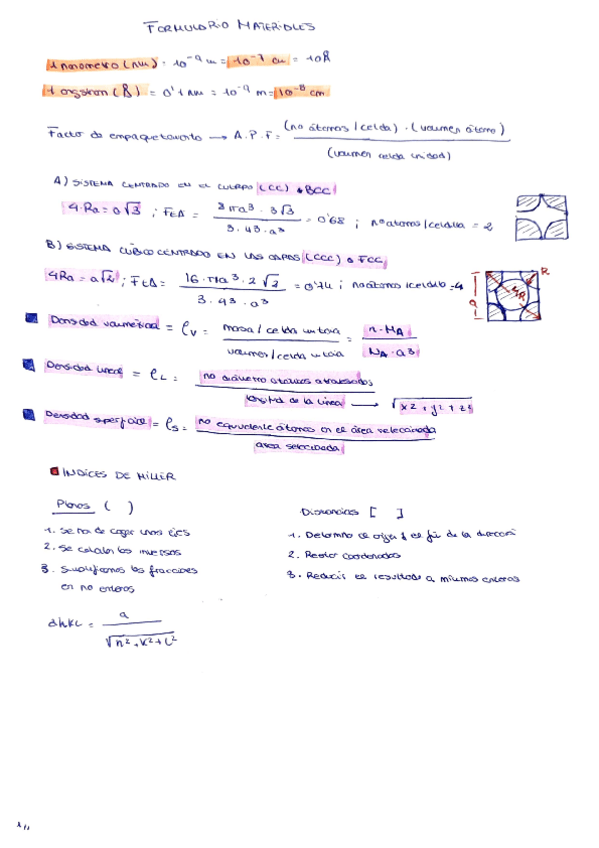 FORMULARIO MATERIALES
1 nanometro (nm) = 10⁻⁹ m = 10⁻⁷ cm = 10Å
1 angstrom (Å) = 0'1 nm = 10⁻⁹ m = 10⁻⁸ cm
Factor de empaquetamiento → A.P.F = (no átomos/celda) · (volumen átomo) / (volumen celda unidad)
A) SISTEMA CENTRADO EN EL CUERPO (CC) o BCC
4·Ra = a√3 ; FEA = = 0'68 ; no atomos/celdilla = 2
3 · 4³ · a³
B) SISTEMA CÚBICO CENTRADO EN LAS CARAS (CCC) o FCC
4Ra = a√2 ; FEA = 16 · πa³ · 2√3 / 3 · 4³ · a³ = 0'74 ; no átomos/celdilla = 4
R
4R
a
Densidad volumétrica = ρv = masa/celda unitaria / volumen/celda unitaria = n·MA / NA·a³
Densidad lineal = ρL = no diámetro atómicos atravesados / longitud de la línea → √x²+y²+z²
Densidad superficial = ρs = no equivalente átomos en el área seleccionada / area seleccionada
INDICES DE MILLER
Planos ( )
1. Se ha de coger unos ejes
2. Se calculan los inversos
3. Simplificamos las fracciones
en no enteros
Direcciones [ ]
1. Determino el origen y el fin de la dirección
2. Restar coordenadas
3. Reducir el resultado a mínimos enteros
dhkl = a / √h²+k²+l²